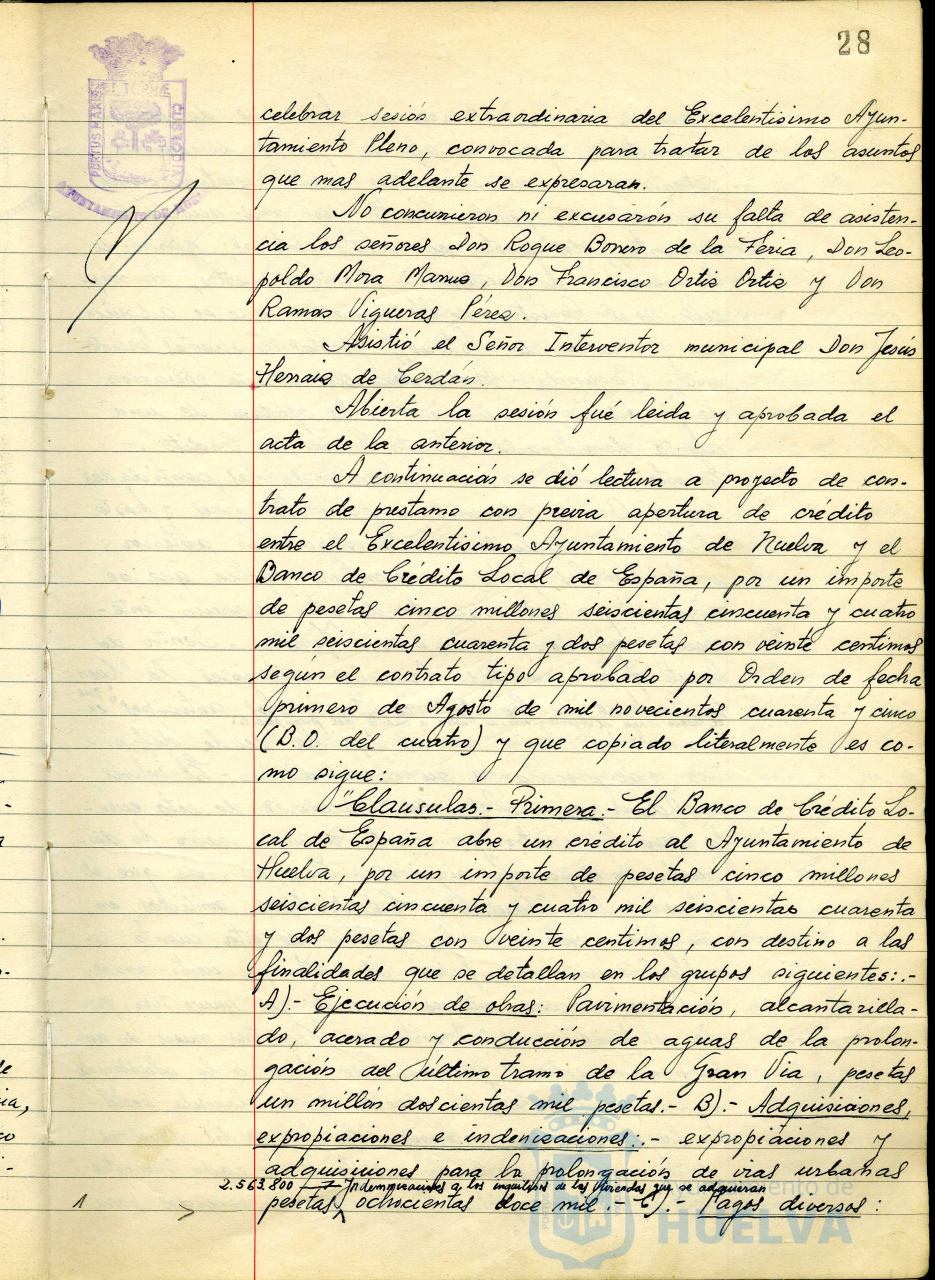 28
celebrar sesión extraordinaria del Excelentisimo Ayun-
tamiento Pleno, convocada para tratar de los asuntos
que mas adelante se expresaran.
No concurrieron ni excusarón su falta de asisten-
cia los señores Don Roque Borrero de la Feria, Don Leo-
poldo Mora Manus, Don Francisco Ortiz Ortiz y Don
Ramos Vigueras Pérez.
Asistió el Señor Interventor municipal Don Jesús
Herraiz de Cerdán.
Abierta la sesión fué leida y aprobada el
acta de la anterior.
A continuación se dió lectura a proyecto de con-
trato de prestamo con previa apertura de crédito
entre el Excelentisimo Ayuntamiento de Huelva y el
Banco de Crédito Local de España, por un importe
de pesetas cinco millones seiscientas cincuenta y cuatro
mil seiscientas cuarenta y dos pesetas con veinte centimos
según el contrato tipo aprobado por Orden de fecha
primero de Agosto de mil novecientos cuarenta y cinco
(B.O. del cuatro) y que copiado literalmente es co-
mo sigue:
"Clausulas.- Primera.- El Banco de Crédito Lo-
cal de España abre un crédito al Ayuntamiento de
Huelva, por un importe de pesetas cinco millones
seiscientas cincuenta y cuatro mil seiscientas cuarenta
y dos pesetas con veinte centimos, con destino a las
finalidades que se detallan en los grupos siguientes:.-
A).- Ejecución de obras: Pavimentación, alcantarilla-
do, acerado y conducción de aguas de la prolon-
gación del último tramo de la Gran Via, pesetas
un millón doscientas mil pesetas.- B).- Adquisiciones,
expropiaciones e indenizaciones:.- expropiaciones y
adquisiciones para la prolongación de vias urbanas
2.563.800 Indemnizaciones a los inquilinos de las viviendas que se adquieran
1 > pesetas ochocientas doce mil.- C).- Pagos diversos:
PORTUS MARIS ET TERRAE CUSTODIA
AYUNTAMIENTO DE
Ayuntamiento de
HUELVA